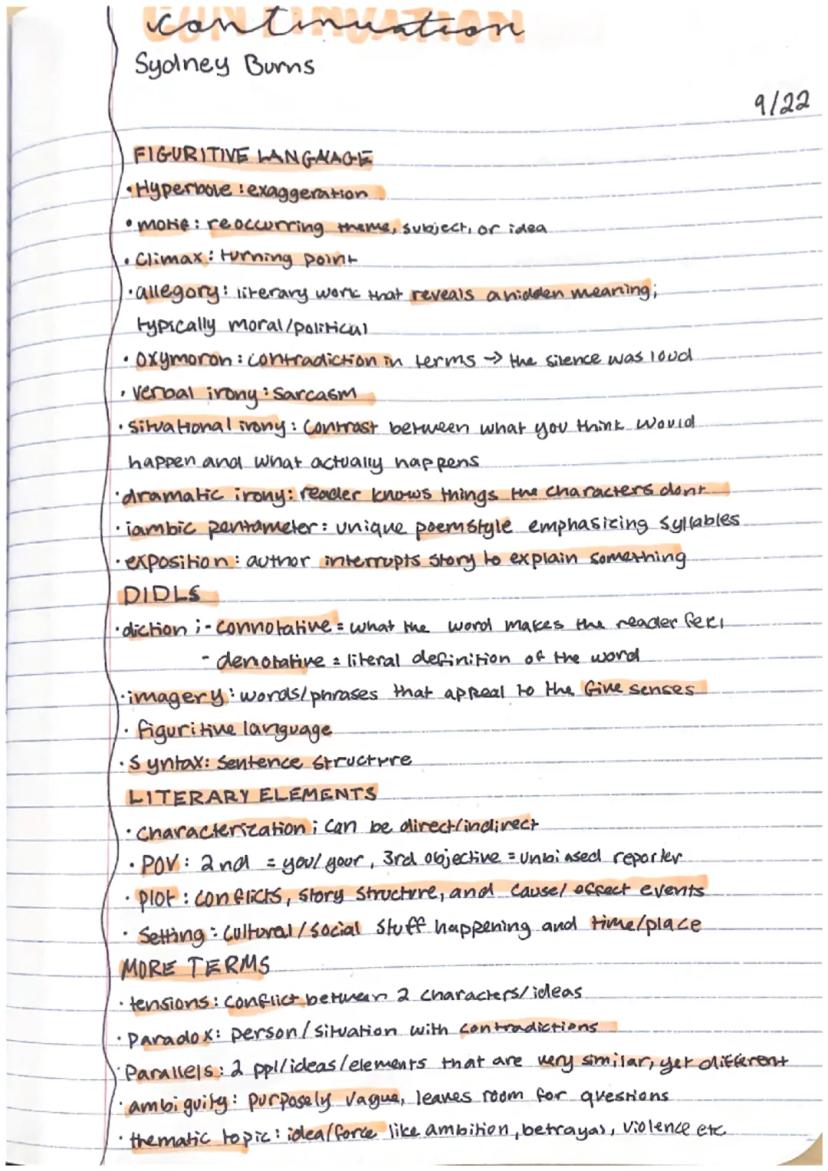 continuation
CONTINUATION
Sydney Burns
9/22
FIGURITIVE LANGUAGE
• Hyperbole : exaggeration
• motif : reoccurring theme, subject, or idea
• Climax : turning point
• allegory : literary work that reveals a hidden meaning;
typically moral/political
• oxymoron : contradiction in terms → the silence was loud
• verbal irony : sarcasm
• situational irony : contrast between what you think would
happen and what actually happens
• dramatic irony : reader knows things the characters dont
• iambic pentameter : unique poem style emphasizing syllables
• exposition : author interrupts story to explain something
DIDLS
• diction ; - connotative = what the word makes the reader feel
- denotative = literal definition of the word
• imagery : words/phrases that appeal to the five senses
• figuritive language
• Syntax: sentence structure
LITERARY ELEMENTS
• characterization ; can be direct/indirect
• POV : 2nd = you/your, 3rd objective = unbiased reporter
• plot : conflicts, story structure, and cause/effect events
• Setting : cultural/social stuff happening and time/place
MORE TERMS
• tensions : conflict between 2 characters/ideas
• Paradox : person/situation with contradictions
• Parallels : 2 ppl/ideas/elements that are very similar, yet different
• ambiguity : purposely vague, leaves room for questions
• thematic topic : idea/force like ambition, betrayal, violence etc